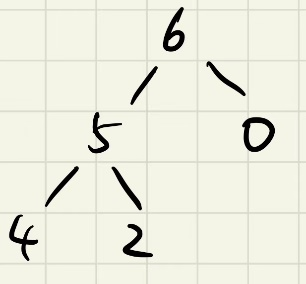 6
5 0
4 2